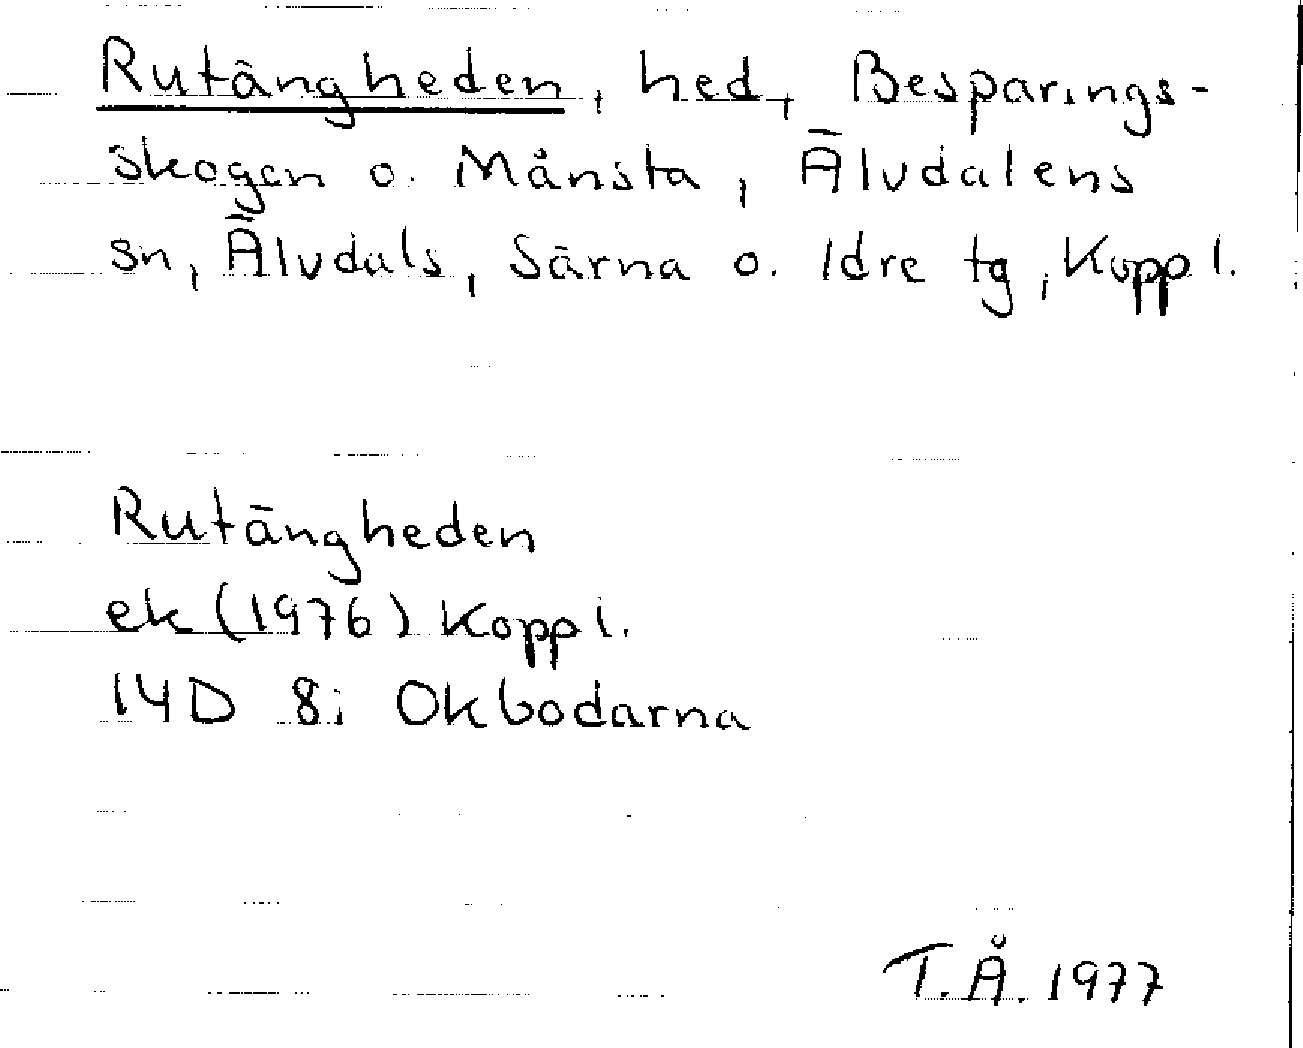 Rutängheden, hed, Besparings-
skogen o. Månsta, Älvdalens
sn, Älvdals, Särna o. Idre tg, Koppl.
Rutängheden
ek (1976) Koppl.
14D 8i Okbodarna
T.Å. 1977